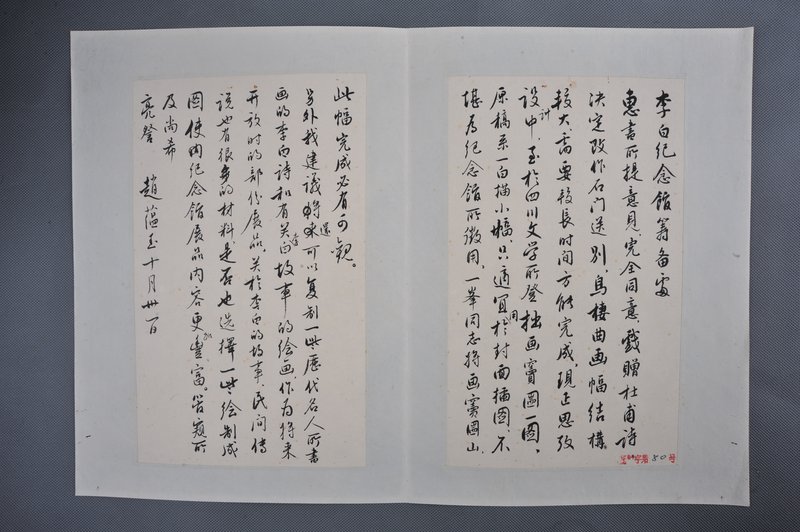 李白纪念馆筹备处
惠书所提意见，完全同意，戏赠杜甫诗
决定改作石门送别，乌棲曲画幅结構
较大，需要较长时间方能完成，现正思考
设计中，至於四川文学所登拙画窦圌一图，
原稿系一白描小幅，只适宜於封面插图不
堪为纪念馆所徵用，一峯同志将画窦圌山，
此幅完成必有可观。
另外我建议将来可以复制一些历代名人所书
画的李白诗和有关李白故事的绘画作为将来
开放时的部份展品，关於李白的故事，民间传
说也有很多的材料是否也选择一些绘制成
图使内纪念馆展品内容更加丰富。管窥所
及尚希
亮詧
趙蕴玉十月卅一日
80号